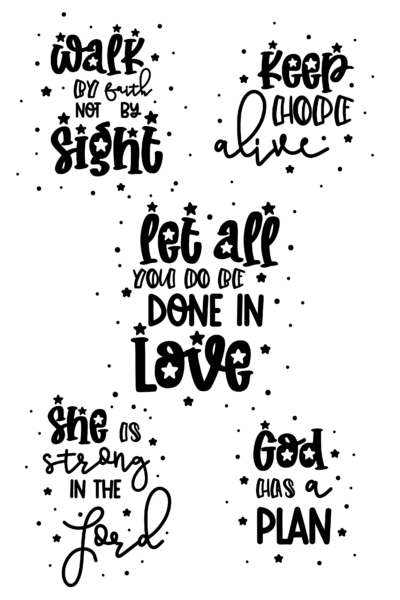 walk
BY faith
NOT BY
Sight
Keep
HOPE
alive
let all
YOU DO BE
DONE IN
Love
She IS
strong
IN THE
Lord
God
HAS a
PLAN